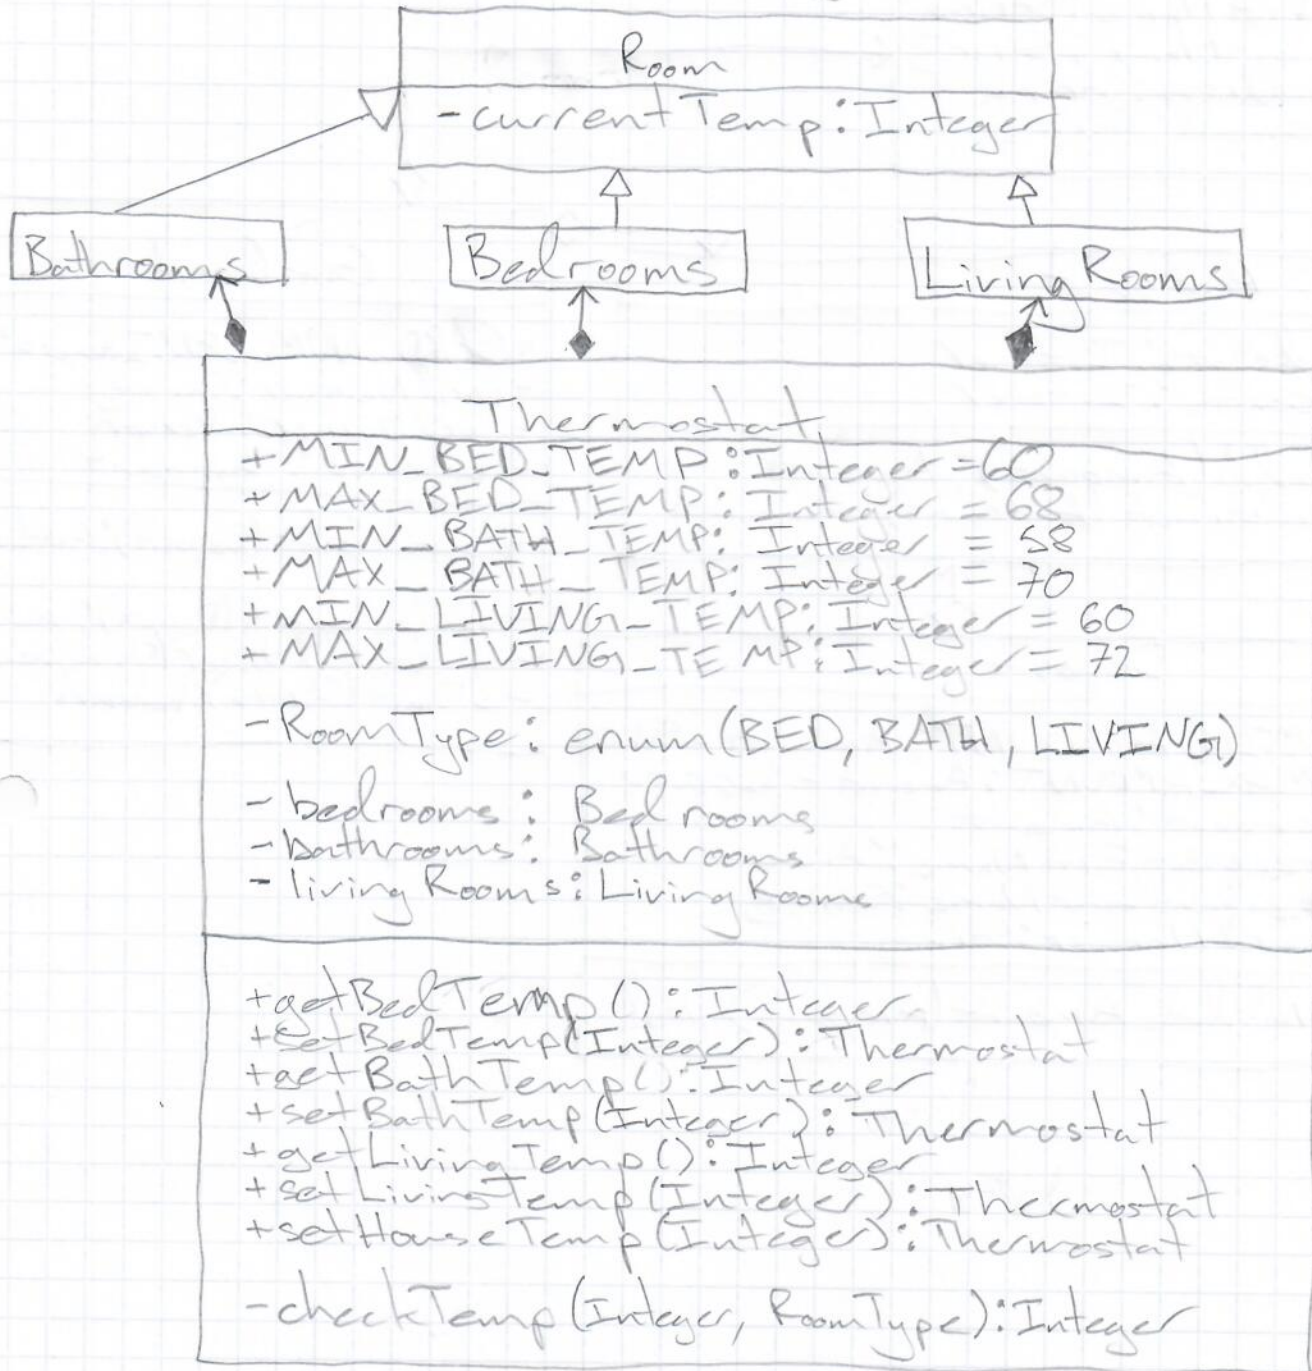 Room
-currentTemp: Integer
Bathrooms
Bedrooms
Living Rooms
Thermostat
+MIN_BED_TEMP: Integer = 60
+MAX_BED_TEMP: Integer = 68
+MIN_BATH_TEMP: Integer = 58
+MAX_BATH_TEMP: Integer = 70
+MIN_LIVING_TEMP: Integer = 60
+MAX_LIVING_TEMP: Integer = 72
-RoomType: enum(BED, BATH, LIVING)
-bedrooms: Bedrooms
-bathrooms: Bathrooms
-livingRooms: LivingRooms
+getBedTemp(): Integer
+setBedTemp(Integer): Thermostat
+getBathTemp(): Integer
+setBathTemp(Integer): Thermostat
+getLivingTemp(): Integer
+setLivingTemp(Integer): Thermostat
+setHouseTemp(Integer): Thermostat
-checkTemp(Integer, RoomType): Integer